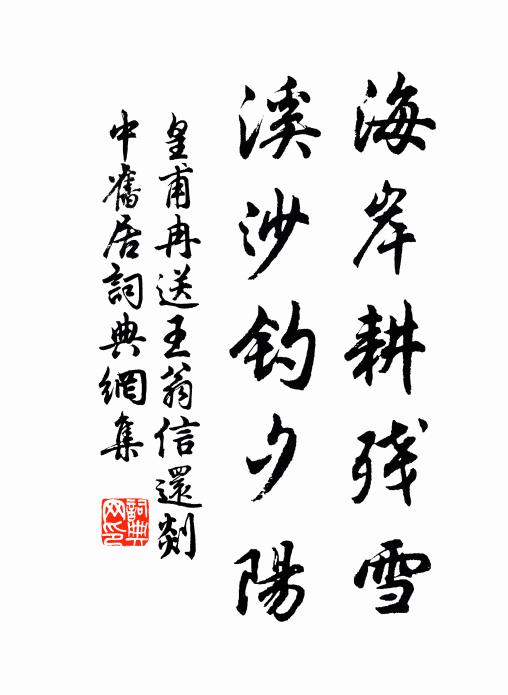 海岸耕残雪
溪沙钓夕陽
皇甫冉送王翁信還剡
中舊居詞典網集
詞典网印